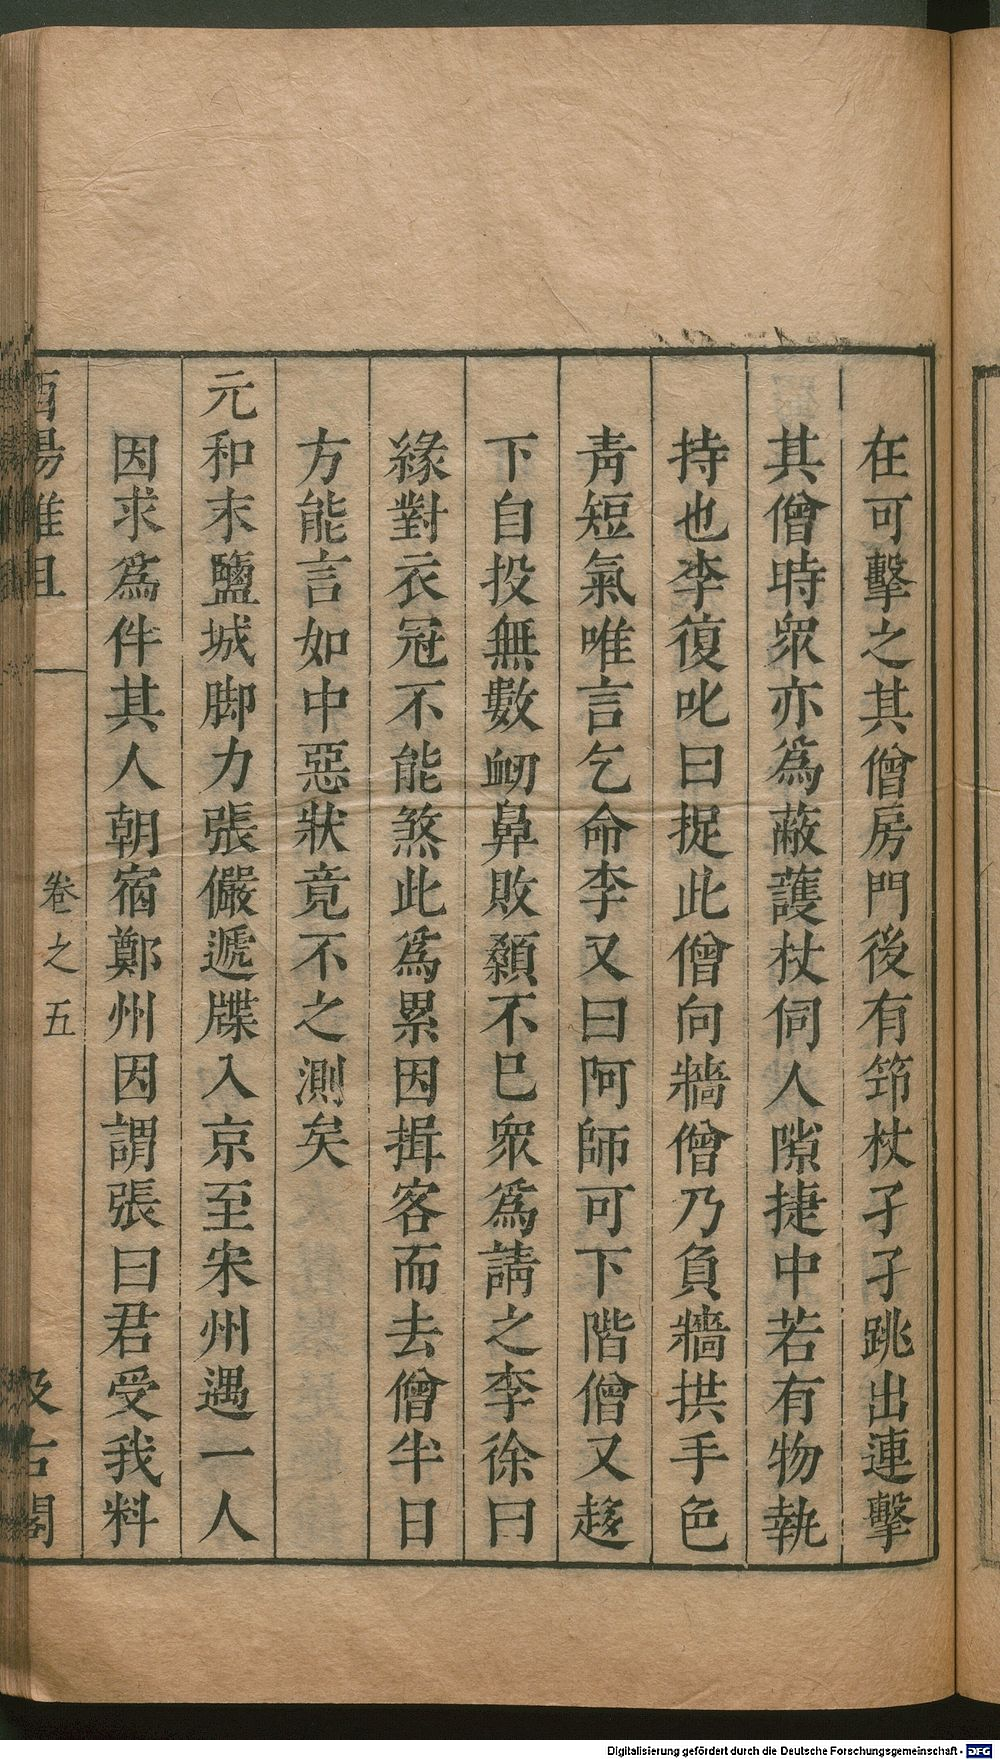 在可擊之其僧房門後有筇杖孑孑跳出連擊
其僧時衆亦爲蔽護杖伺人隙捷中若有物執
持也李復叱曰捉此僧向牆僧乃負牆拱手色
青短氣唯言乞命李又曰阿師可下階僧又趍
下自投無數衂鼻敗顙不已衆爲請之李徐曰
緣對衣冠不能煞此爲累因揖客而去僧半日
方能言如中惡狀竟不之測矣
元和末鹽城脚力張儼遞牒入京至宋州遇一人
因求爲伴其人朝宿鄭州因謂張曰君受我料
酉陽雜俎
卷之五
汲古閣
Digitalisierung gefördert durch die Deutsche Forschungsgemeinschaft - DFG